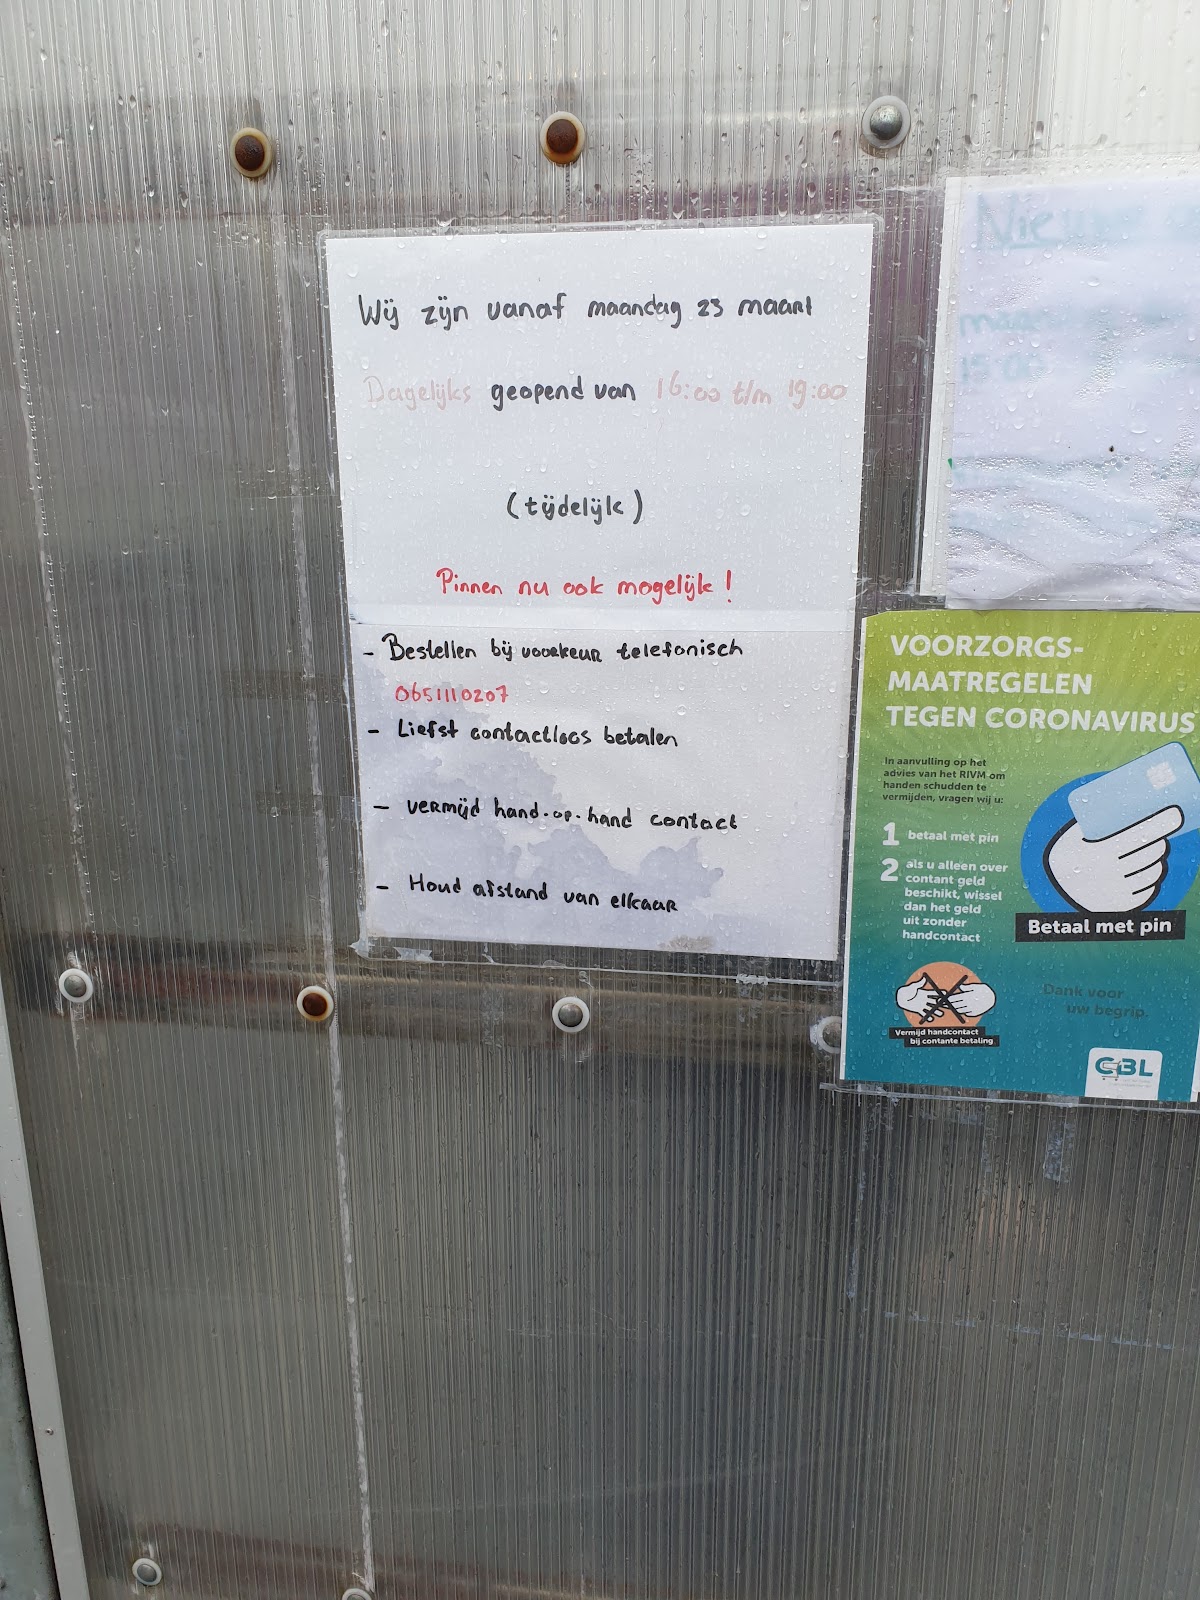 Wij zijn vanaf maandag 23 maart
Dagelijks geopend van 16:00 t/m 19:00
(tijdelijk)
Pinnen nu ook mogelijk!
- Bestellen bij voorkeur telefonisch
0651110207
- Liefst contactloos betalen
- vermijd hand-op-hand contact
- Houd afstand van elkaar
Nieuwe
15:00
VOORZORGS-
MAATREGELEN
TEGEN CORONAVIRUS
In aanvulling op het
advies van het RIVM om
handen schudden te
vermijden, vragen wij u:
1 betaal met pin
2 als u alleen over
contant geld
beschikt, wissel
dan het geld
uit zonder
handcontact
Betaal met pin
Vermijd handcontact
bij contante betaling
Dank voor
uw begrip.
CBL